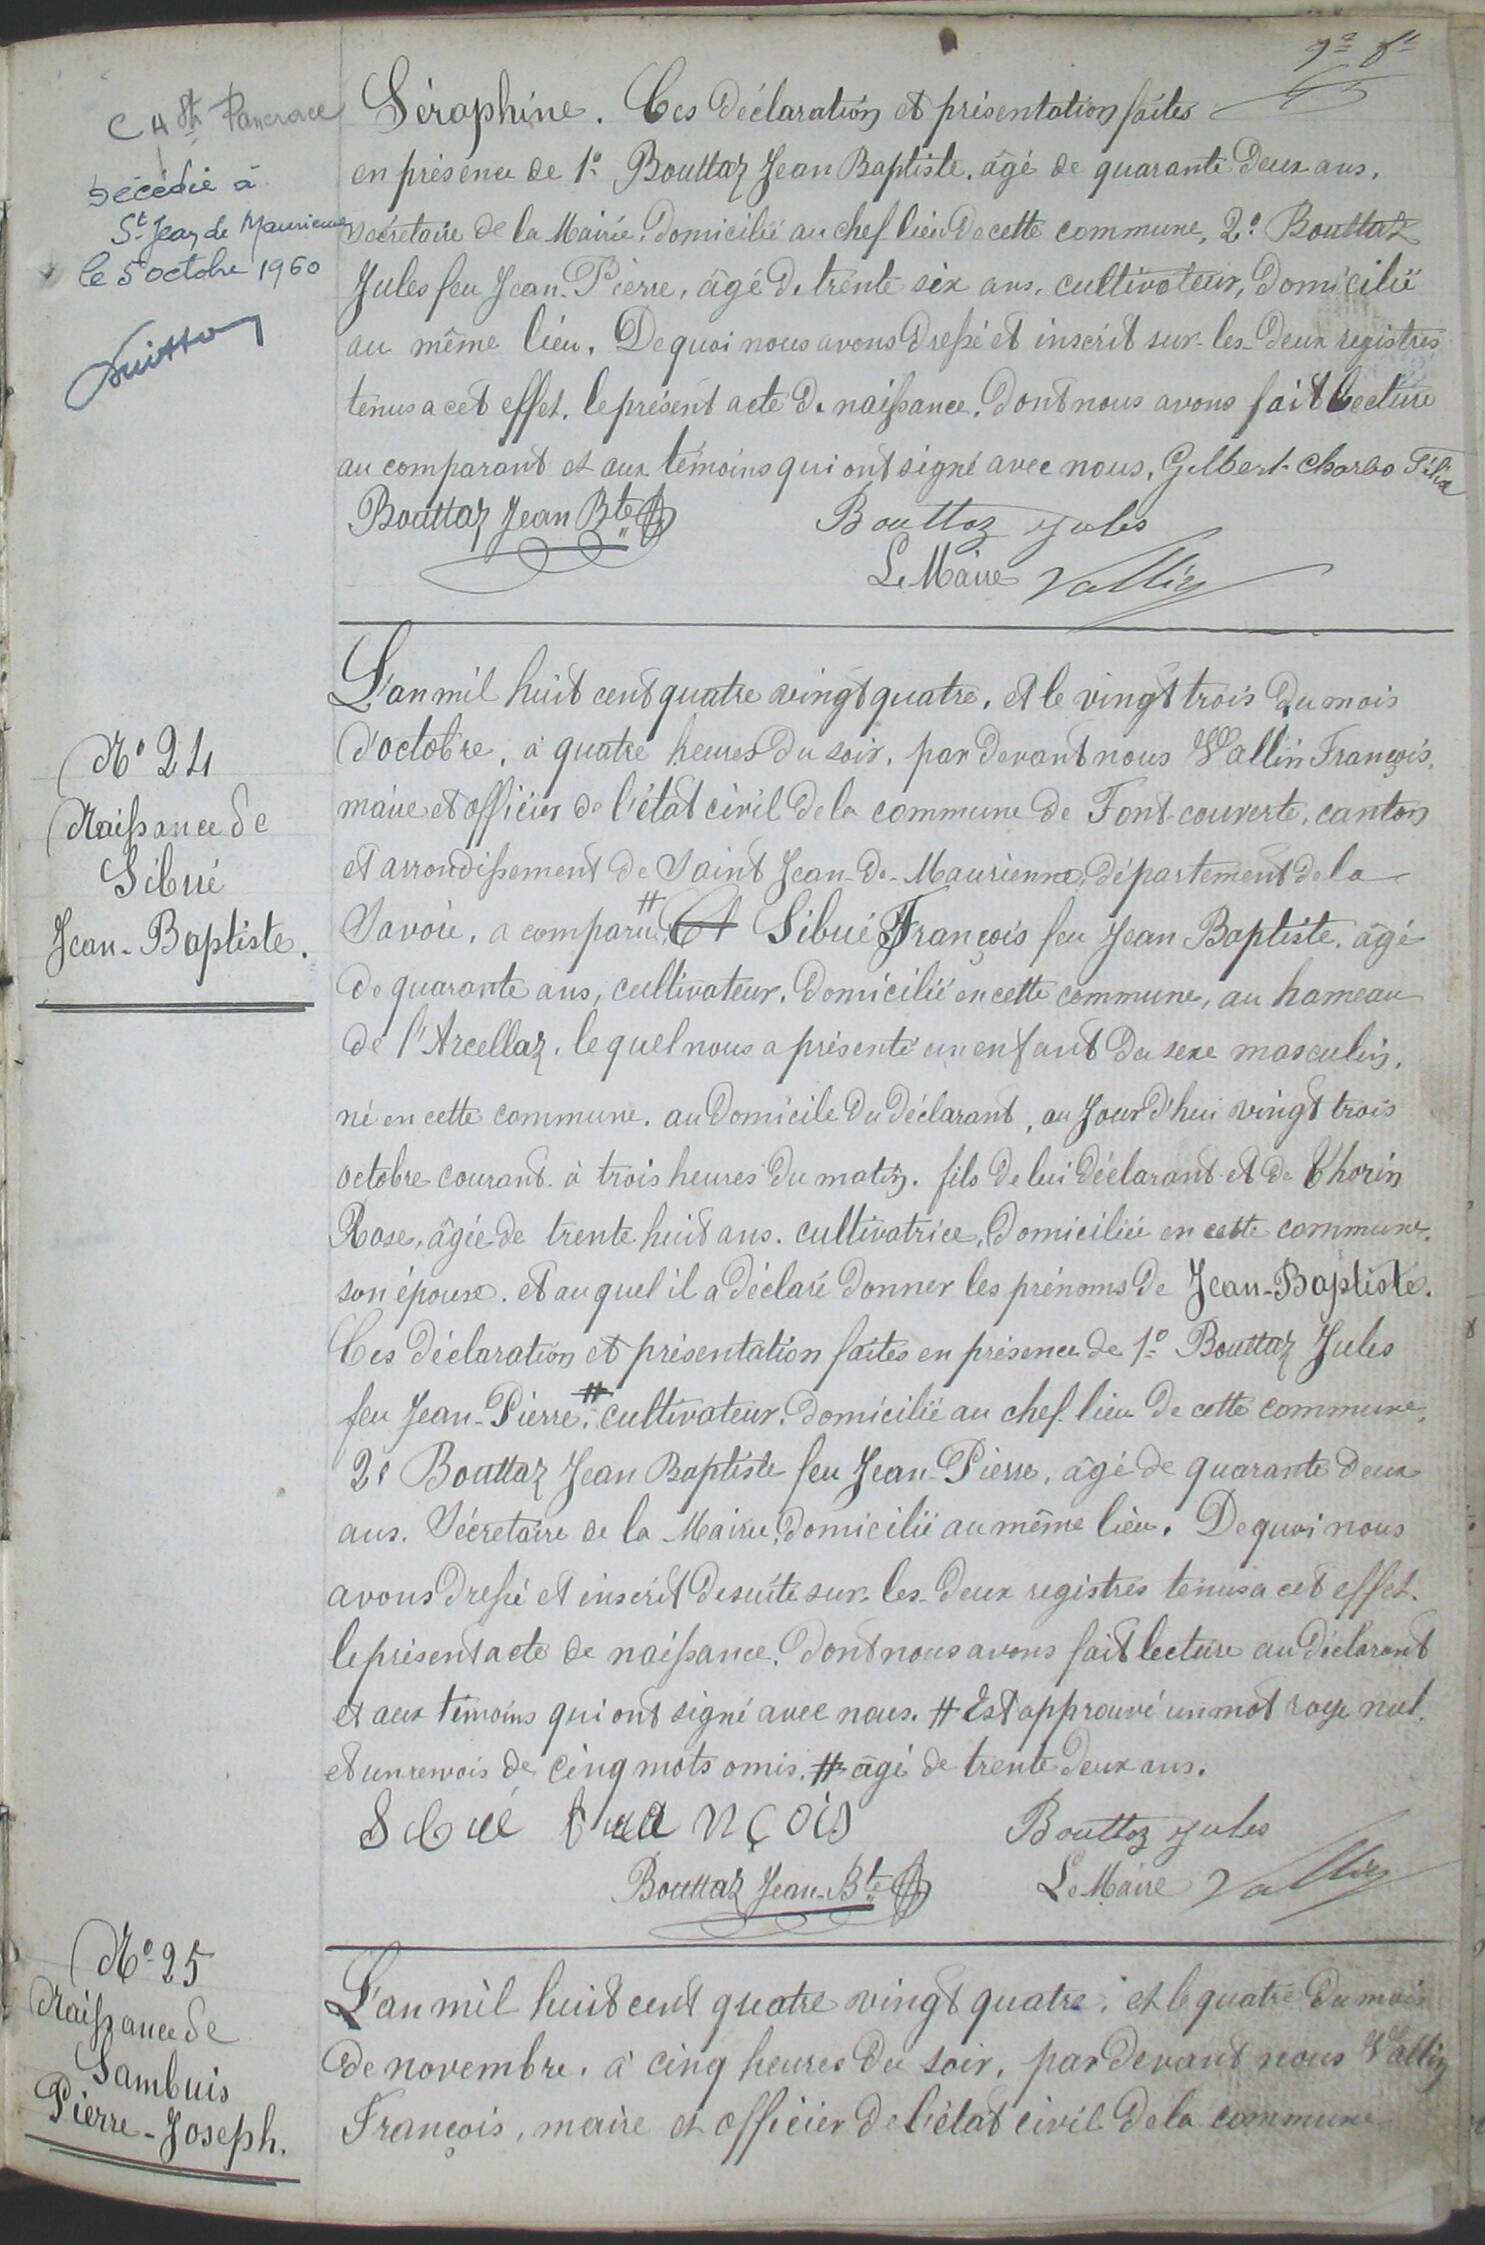 9e ft
C 4 St Pancrace
Décédée à
St Jean de Maurienne
le 5 octobre 1960
Séraphine. Ces déclaration et présentation faites
en présence de 1° Bouttaz Jean Baptiste, âgé de quarante deux ans,
Secrétaire de la Mairie, domicilié au chef-lieu de cette commune, 2° Bouttaz
Jules feu Jean-Pierre, âgé de trente six ans, cultivateur, domicilié
au même lieu. De quoi nous avons dressé et inscrit sur-les-deux registres
tenus a cet effet, le présent acte de naissance, dont nous avons fait lecture
au comparant et aux témoins qui ont signé avec nous. Gilbert-Charbo Félix
Bouttaz Jean Bte
Bouttaz Jules
Le Maire Vallin
N° 24
Naissance de
Sibué
Jean-Baptiste.
L'an mil huit cent quatre vingt quatre, et le vingt trois du mois
d'octobre, à quatre heures du soir, par devant nous Vallin François,
maire et officier de l'état civil de la commune de Font-couverte, canton
et arrondissement de Saint Jean-de-Maurienne, département de la
Savoie, a comparu, # Et Sibué François feu Jean Baptiste, âgé
de quarante ans, cultivateur, domicilié en cette commune, au hameau
de l'Arcellaz, lequel nous a présenté un enfant du sexe masculin,
né en cette commune, au domicile du déclarant, au jour d'hui vingt trois
octobre courant à trois heures du matin, fils de lui déclarant et de Thorin
Rose, âgée de trente huit ans, cultivatrice, domiciliée en cette commune,
son épouse, et auquel il a déclaré donner les prénoms de Jean-Baptiste.
Ces déclaration et présentation faites en présence de 1° Bouttaz Jules
feu Jean-Pierre, # cultivateur, domicilié au chef-lieu de cette commune,
2° Bouttaz Jean Baptiste feu Jean-Pierre, âgé de quarante deux
ans, Sécretaire de la Mairie, domicilié au même lieu. De quoi nous
avons dressé et inscrit desuite sur-les-deux registres tenus a cet effet
le présent acte de naissance, dont nous avons fait lecture au déclarant
et aux témoins qui ont signé avec nous. # Est approuvé un mot rayé nul
et un renvois de cinq mots omis. # âgé de trente deux ans.
Sibué François
Bouttaz Jules
Bouttaz Jean-Bte
Le Maire Vallin
N° 25
Naissance de
Sambuis
Pierre-Joseph.
L'an mil huit cent quatre vingt quatre, et le quatre du mois
de novembre, à cinq heures du soir, par devant nous Vallin
François, maire et officier de l'état civil de la commune